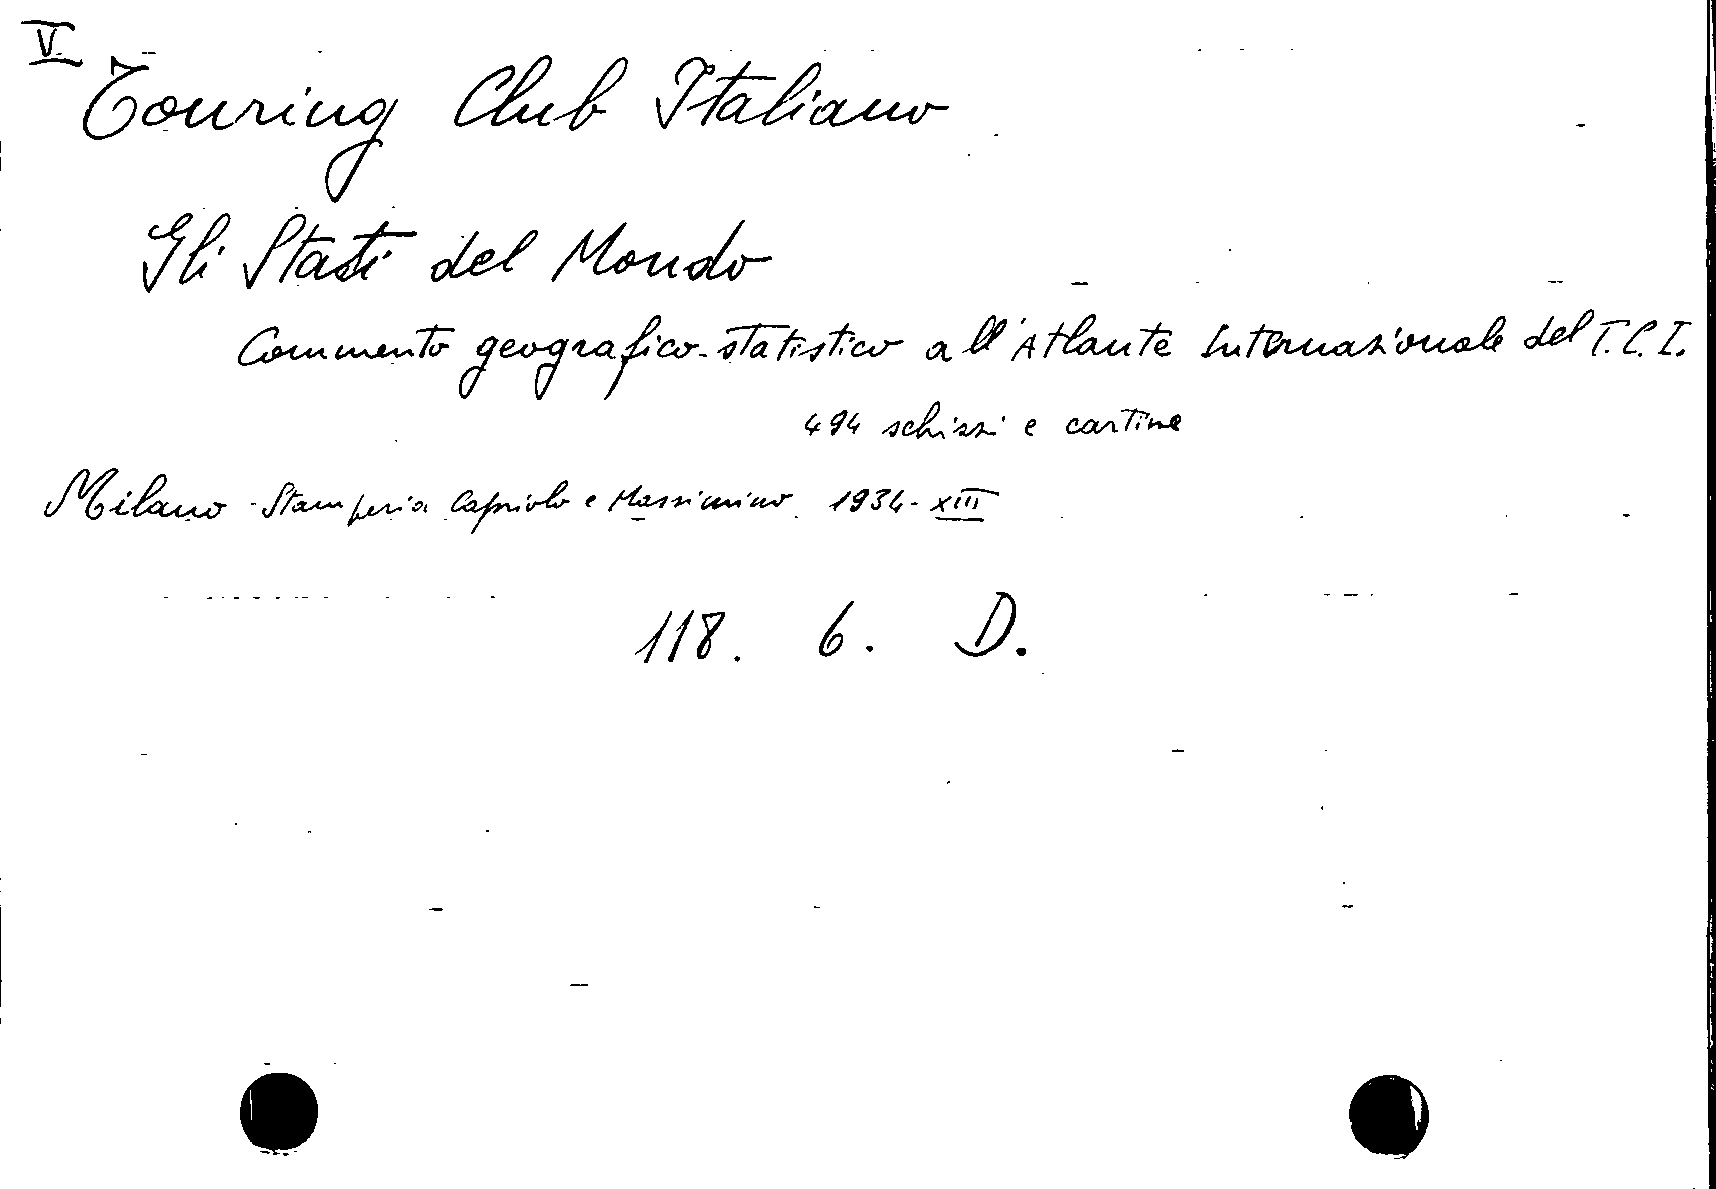 V
Touring Club Italiano
Gli Stati del Mondo
Commento geografico-statistico all'Atlante Internazionale del T.C.I.
494 schizzi e cartine
Milano - Stamperia Capriolo e Massimino 1934 - XIII
118. 6. D.